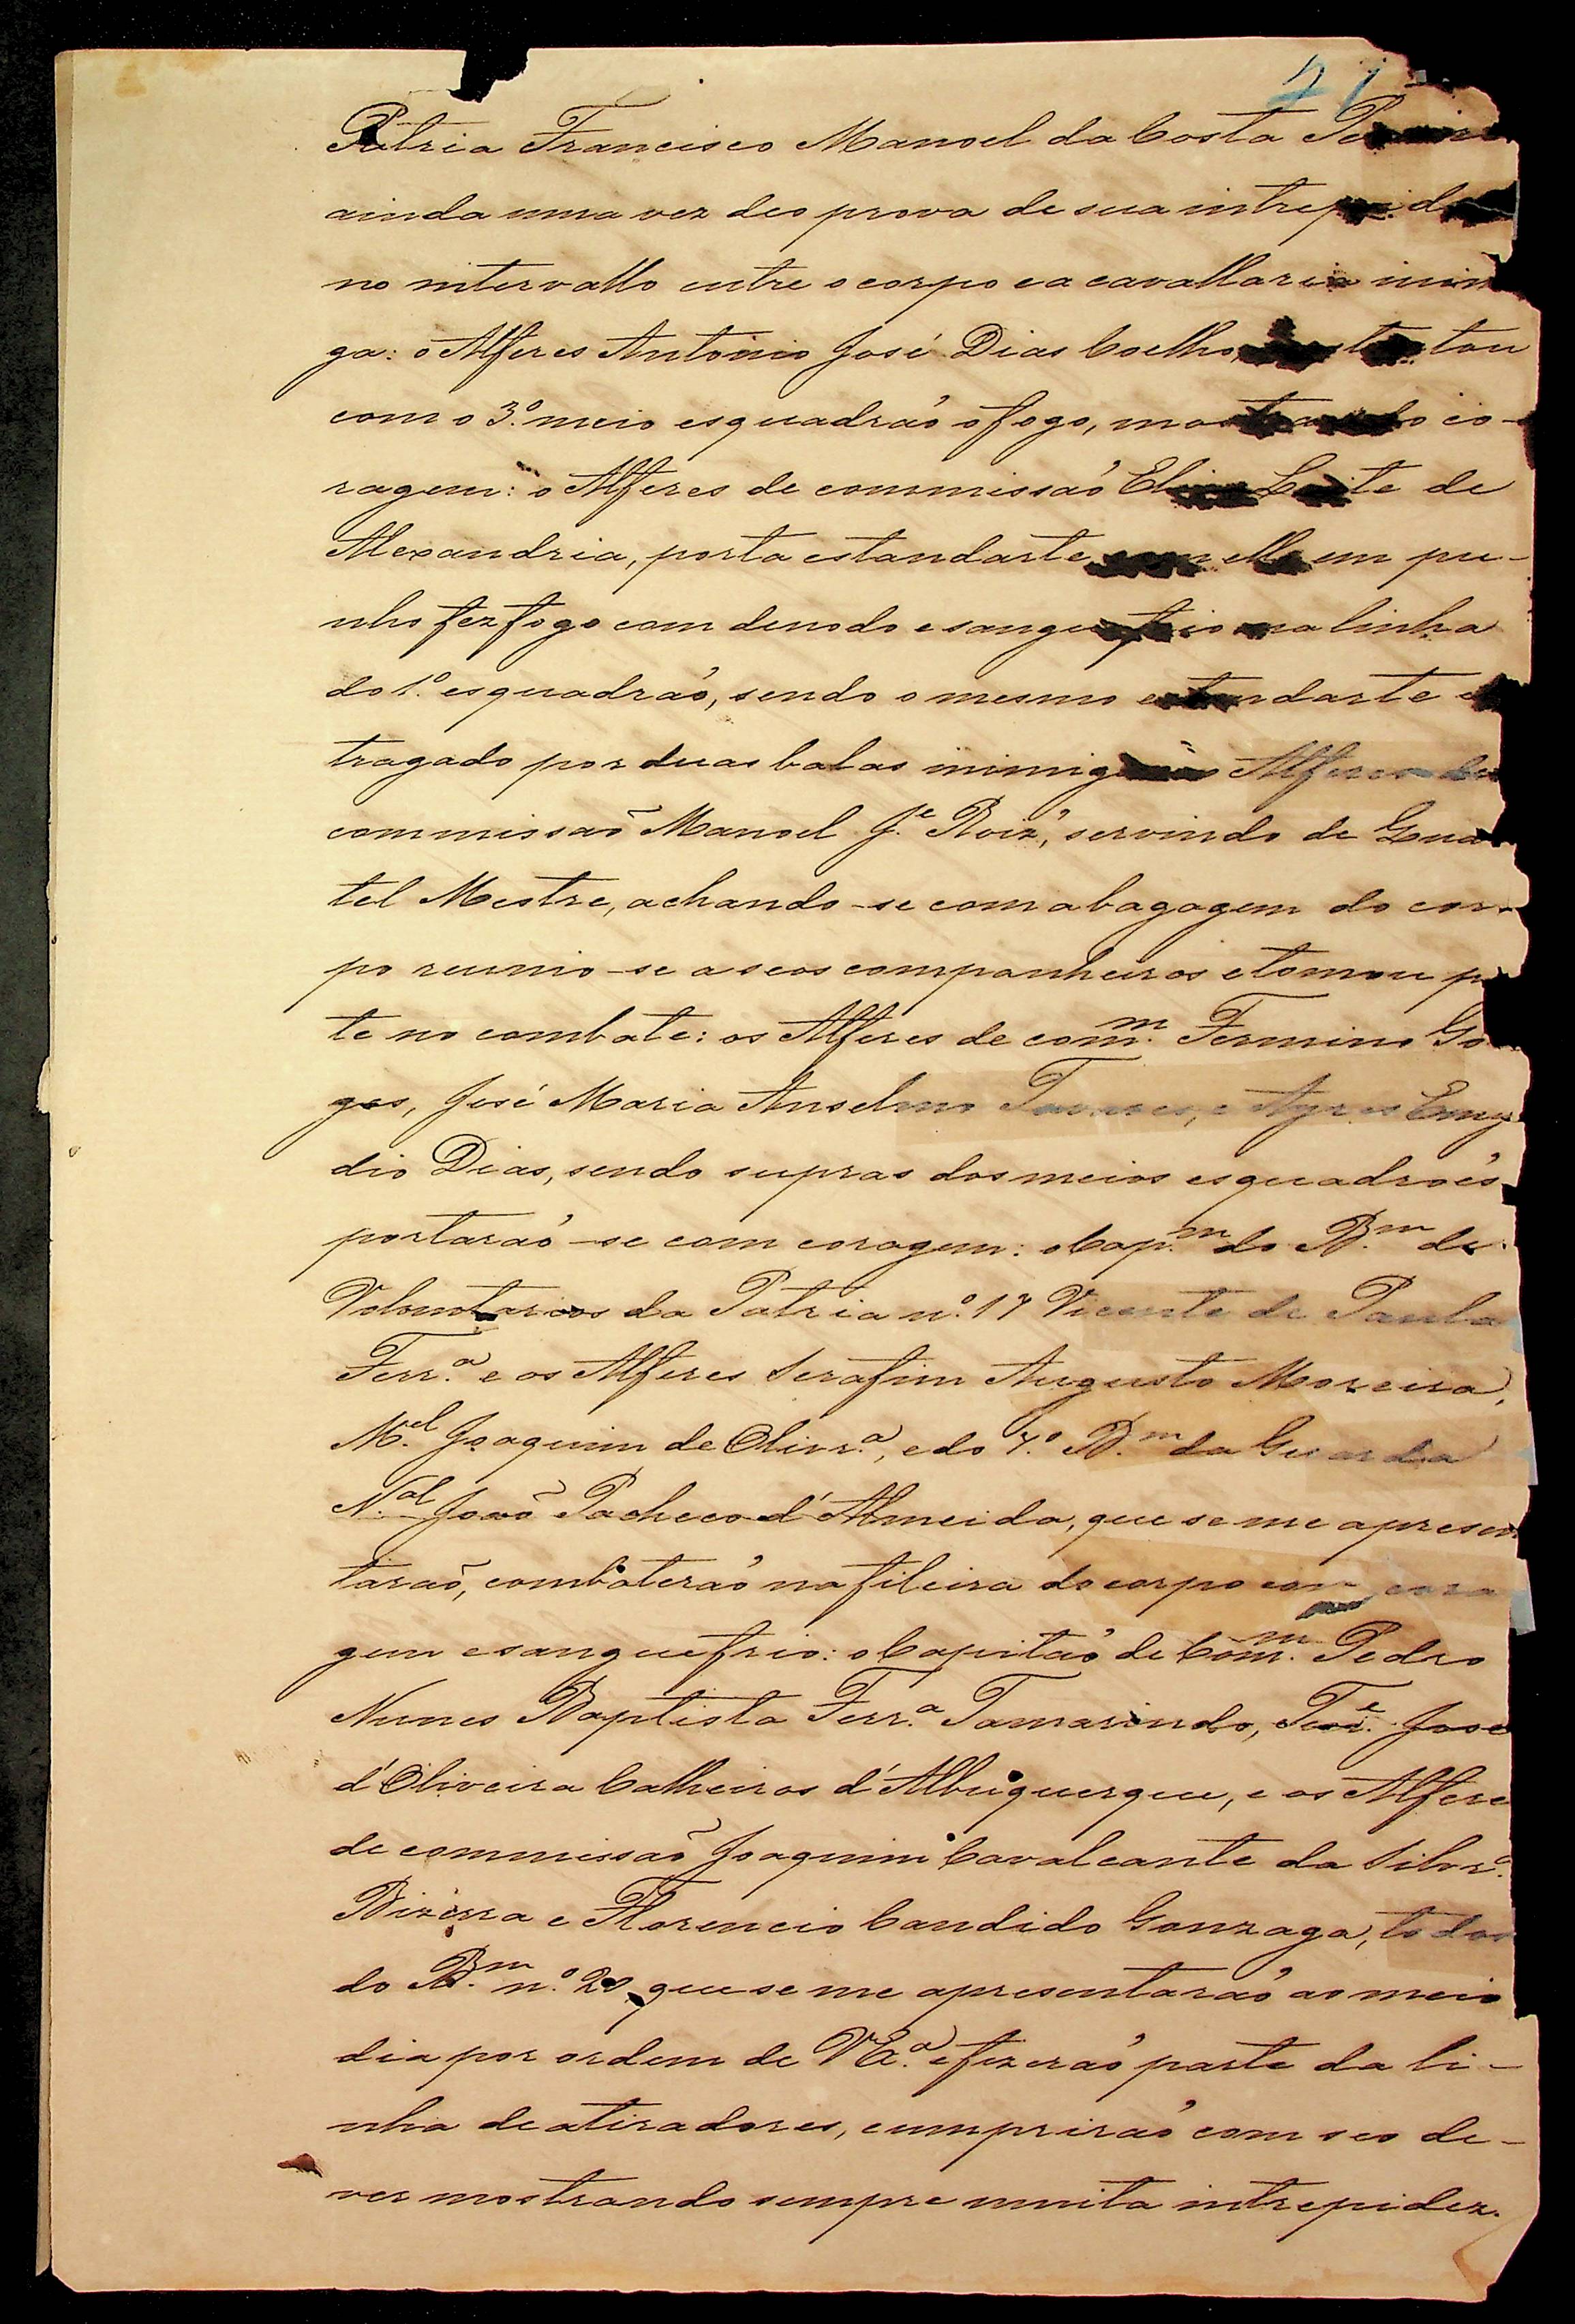 41
Patria Francisco Manoel da Costa
ainda uma vez deo prova de sua intrepid
no intervallo entre o corpo e a cavallaria inim
ga: o Alferes Antonio José Dias Coelho, tou
com o 3.º meio esquadraõ o fogo, mostrando co-
ragem: o Alferes de commissaõ Leite de
Alexandria, porta estandarte, com elle em pu-
nho fez fogo com denodo e sangue frio na linha
do 1.º esquadraõ, sendo o mesmo estandarte es
tragado por duas balas inimigas: o Alferes de
commissaõ Manoel J.e Roiz', servindo de Quar
tel Mestre, achando-se com a bagagem do cor-
po reunio-se a seos companheiros e tomou p
te no combate: os Alferes de com.m Fermino Go
gas, José Maria Anselmo Tavares, e Ayres Emy
dio Dias, sendo supras dos meios esquadroẽs
portaraõ-se com coragem: o Cap.m do B.m de
Voluntarios da Patria n.º 17 Vicente de Paula
Ferr.a e os Alferes Serafim Augusto Moreira,
M.el Joaquim de Olivr.a, e do 7.º B.m da Guarda
N.al Joaõ Pacheco d'Almeida, que se me apresen
taraõ, combateraõ na fileira do corpo com cora
gem e sangue frio: o Capitaõ de Com.m Pedro
Nunes Baptista Ferr.a Tamarindo, Ten.e José
d'Oliveira Calheiros d'Albuquerque, e os Alfere
de commissaõ Joaquim Cavalcante da Silvr.a
Bizerra e Florencio Candido Gonzaga, todos
do B.m n.º 20 que se me apresentaraõ ao meio
dia por ordem de VEx.a e fizeraõ parte da li-
nha de atiradores, cumpriraõ com seo de-
ver mostrando sempre muita intrepidez.